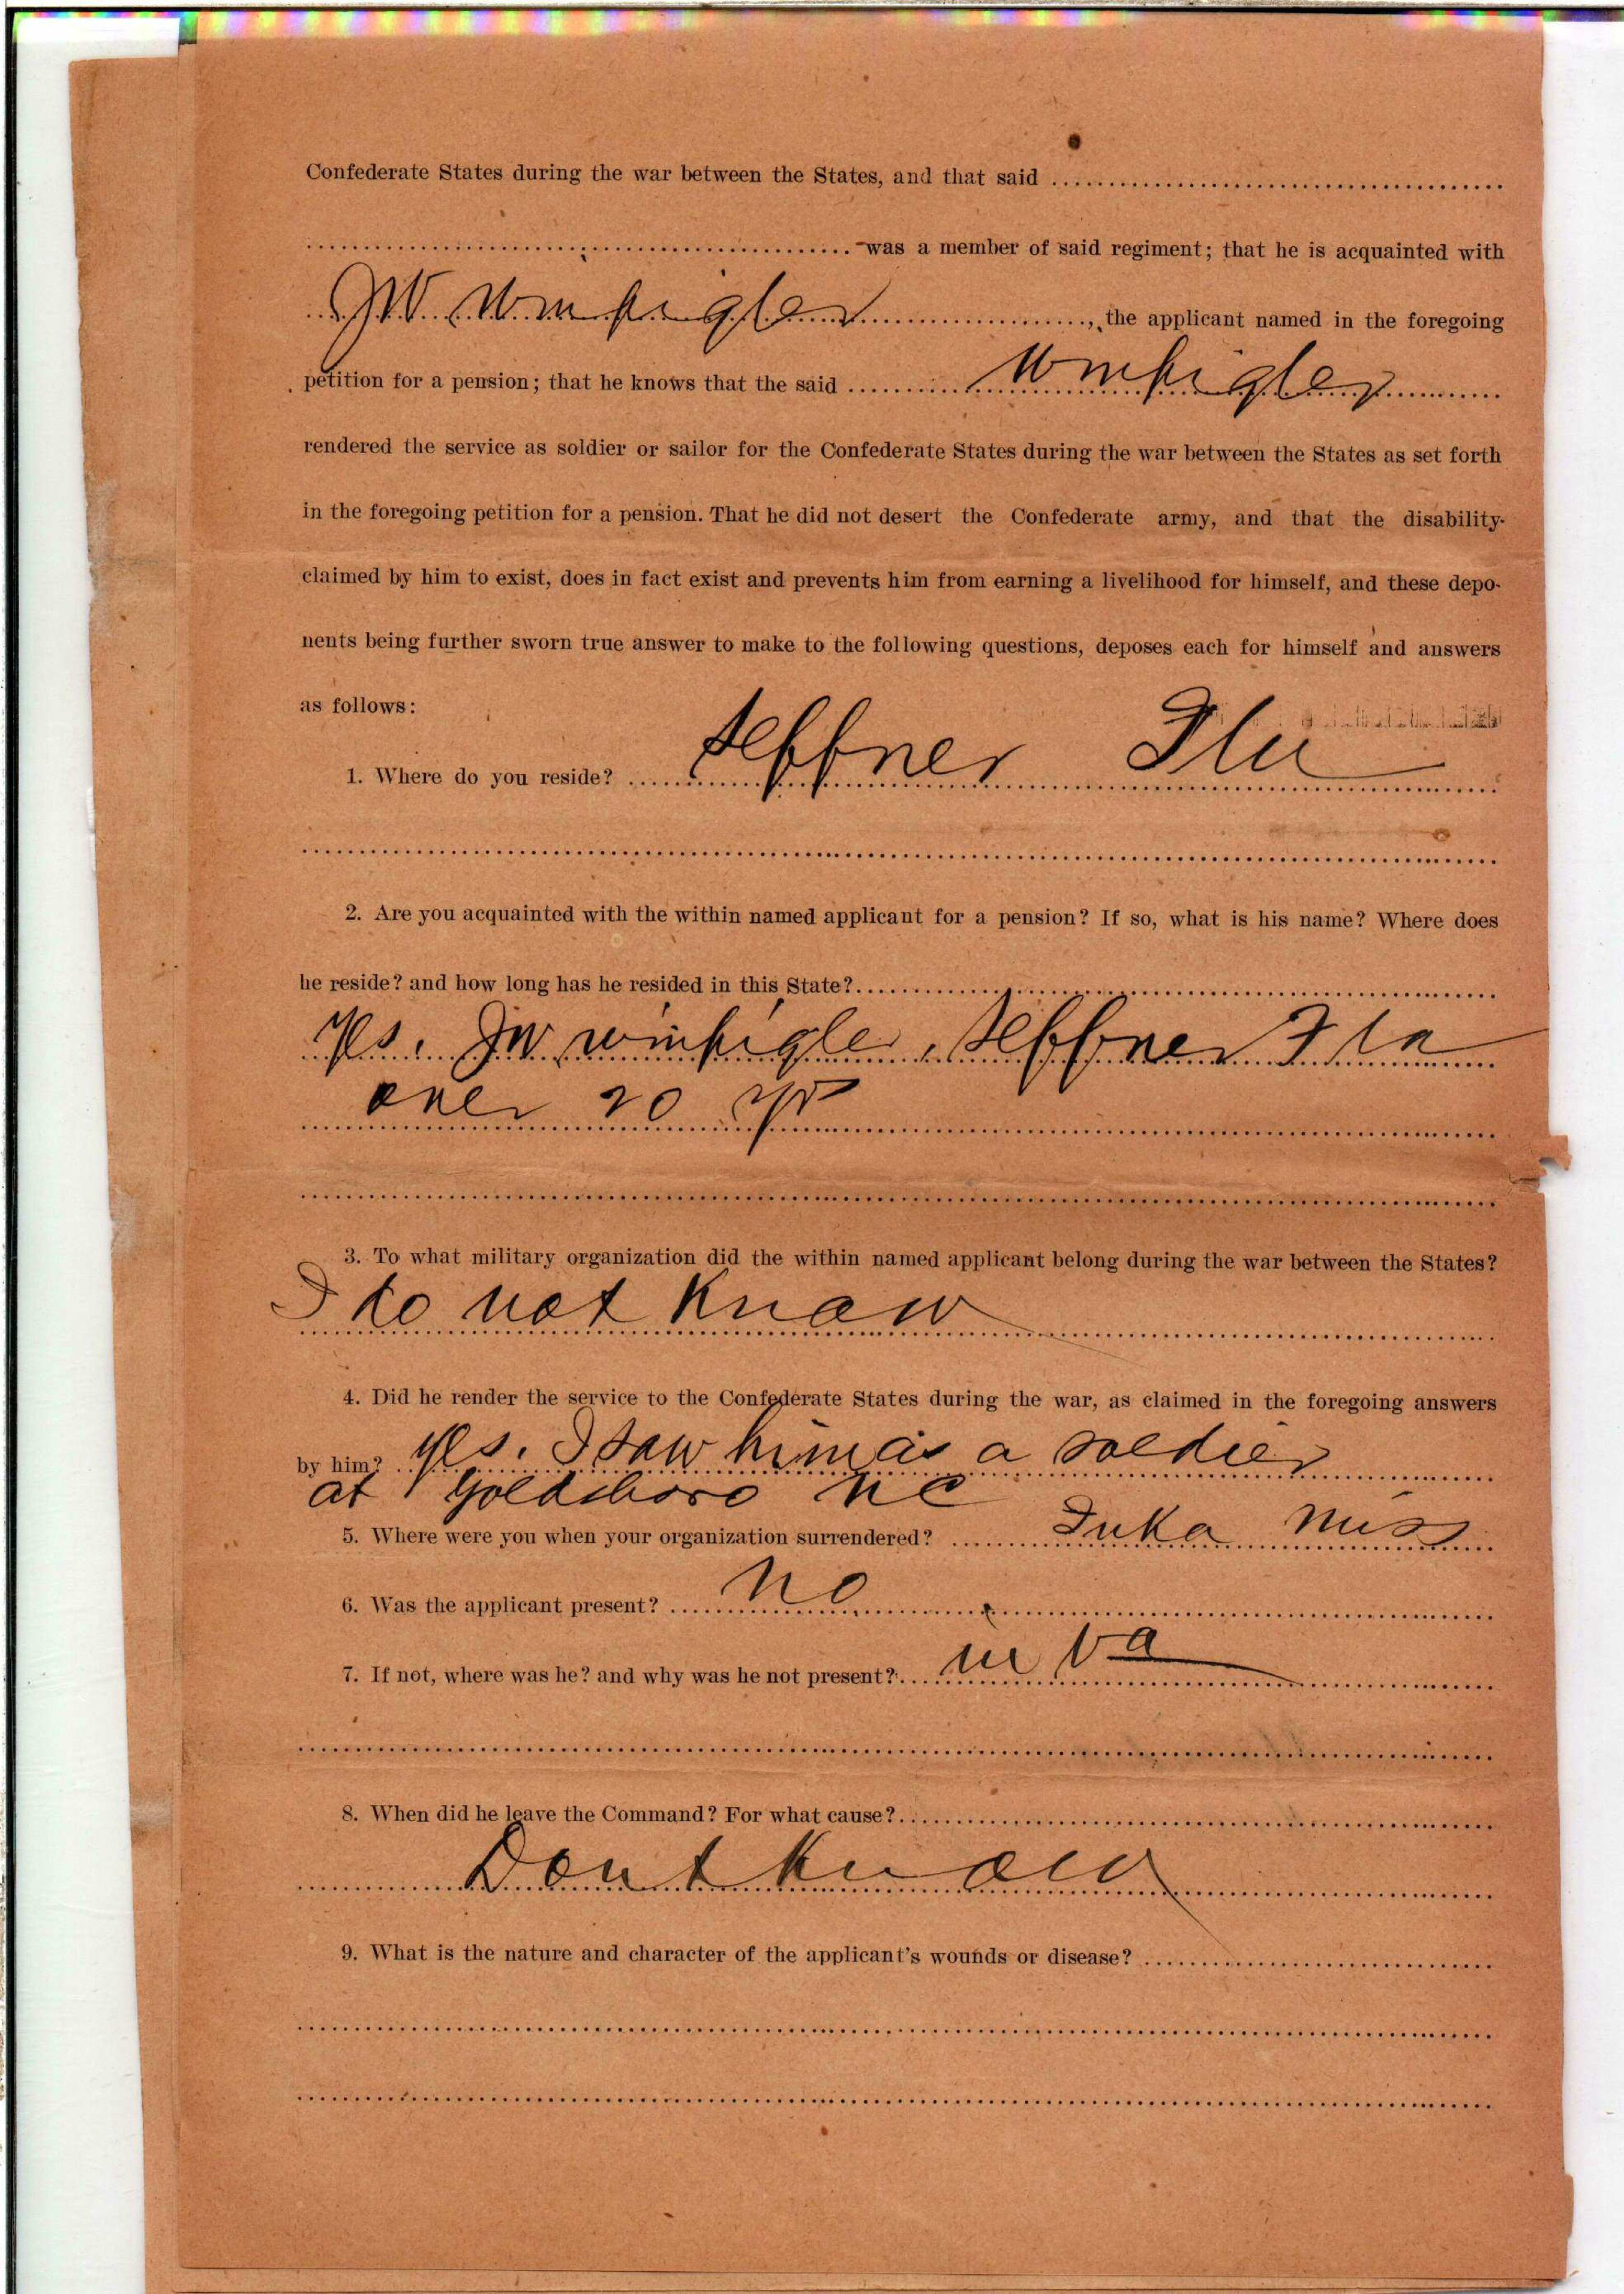 Confederate States during the war between the States, and that said
was a member of said regiment; that he is acquainted with
JW Winpigler, the applicant named in the foregoing
petition for a pension; that he knows that the said Winpigler
rendered the service as soldier or sailor for the Confederate States during the war between the States as set forth
in the foregoing petition for a pension. That he did not desert the Confederate army, and that the disability
claimed by him to exist, does in fact exist and prevents him from earning a livelihood for himself, and these depo-
nents being further sworn true answer to make to the following questions, deposes each for himself and answers
as follows:
1. Where do you reside? Seffner Fla
2. Are you acquainted with the within named applicant for a pension? If so, what is his name? Where does
he reside? and how long has he resided in this State?
Yes. JW Winpigler, Seffner Fla
over 20 yr
3. To what military organization did the within named applicant belong during the war between the States?
I do not Know
4. Did he render the service to the Confederate States during the war, as claimed in the foregoing answers
by him? Yes. I saw him as a soldier
at Goldsboro NC
5. Where were you when your organization surrendered? Iuka Miss
6. Was the applicant present? No
7. If not, where was he? and why was he not present? in Va
8. When did he leave the Command? For what cause?
Dont Know
9. What is the nature and character of the applicant's wounds or disease?